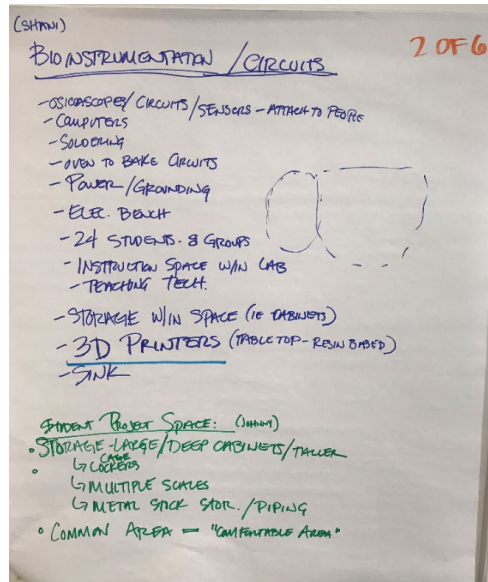 (SHANI)
2 OF 6
BIOINSTRUMENTATION / CIRCUITS
- OSICOSCOPES / CIRCUITS / SENSORS - ATTACH TO PEOPLE
- COMPUTERS
- SOLDERING
- OVEN TO BAKE CIRCUITS
- POWER / GROUNDING
- ELEC. BENCH
- 24 STUDENTS - 8 GROUPS
- INSTRUCTION SPACE W/IN LAB
- TEACHING TECH.
- STORAGE W/IN SPACE (IE CABINETS)
- 3D PRINTERS (TABLE TOP - RESIN BASED)
- SINK
STUDENT PROJECT SPACE: (JOHNNY)
• STORAGE - LARGE / DEEP CABINETS / TALLER
• ↳ CAGE LOCKERS
↳ MULTIPLE SCALES
↳ METAL STICK STOR. / PIPING
• COMMON AREA - "COMFORTABLE AREA"